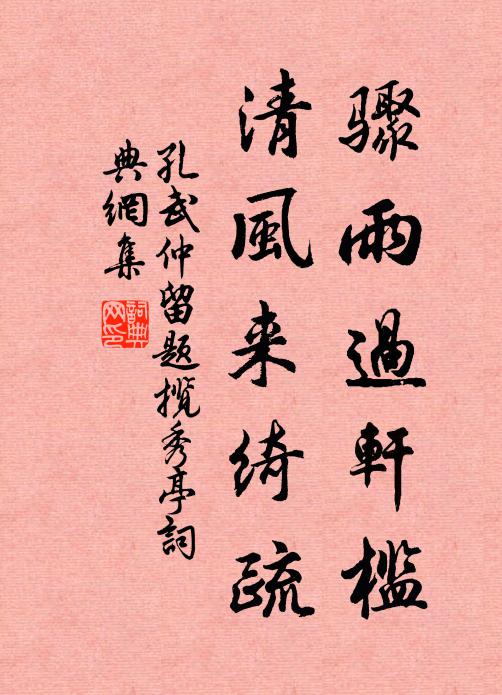 驟雨過軒檻
清風来綺疏
孔武仲留題攬秀亭詞
典網集
詞典
网印